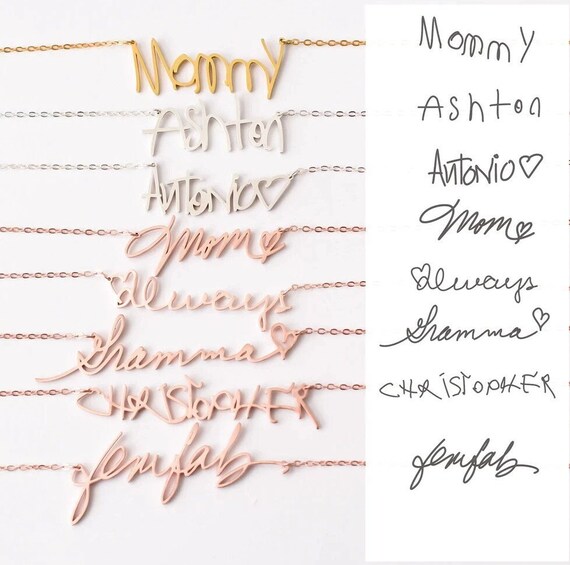 Mommy Mommy
Ashton Ashton
Antonio♡ Antonio♡
Mom♡ Mom♡
♡always ♡always
Gramma♡ Gramma♡
CHRiSTOPHER CHRiSTOPHER
Jemfab Jemfab